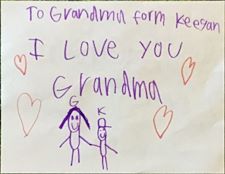 To Grandma form Keegan
I Love you
Grandma
G K